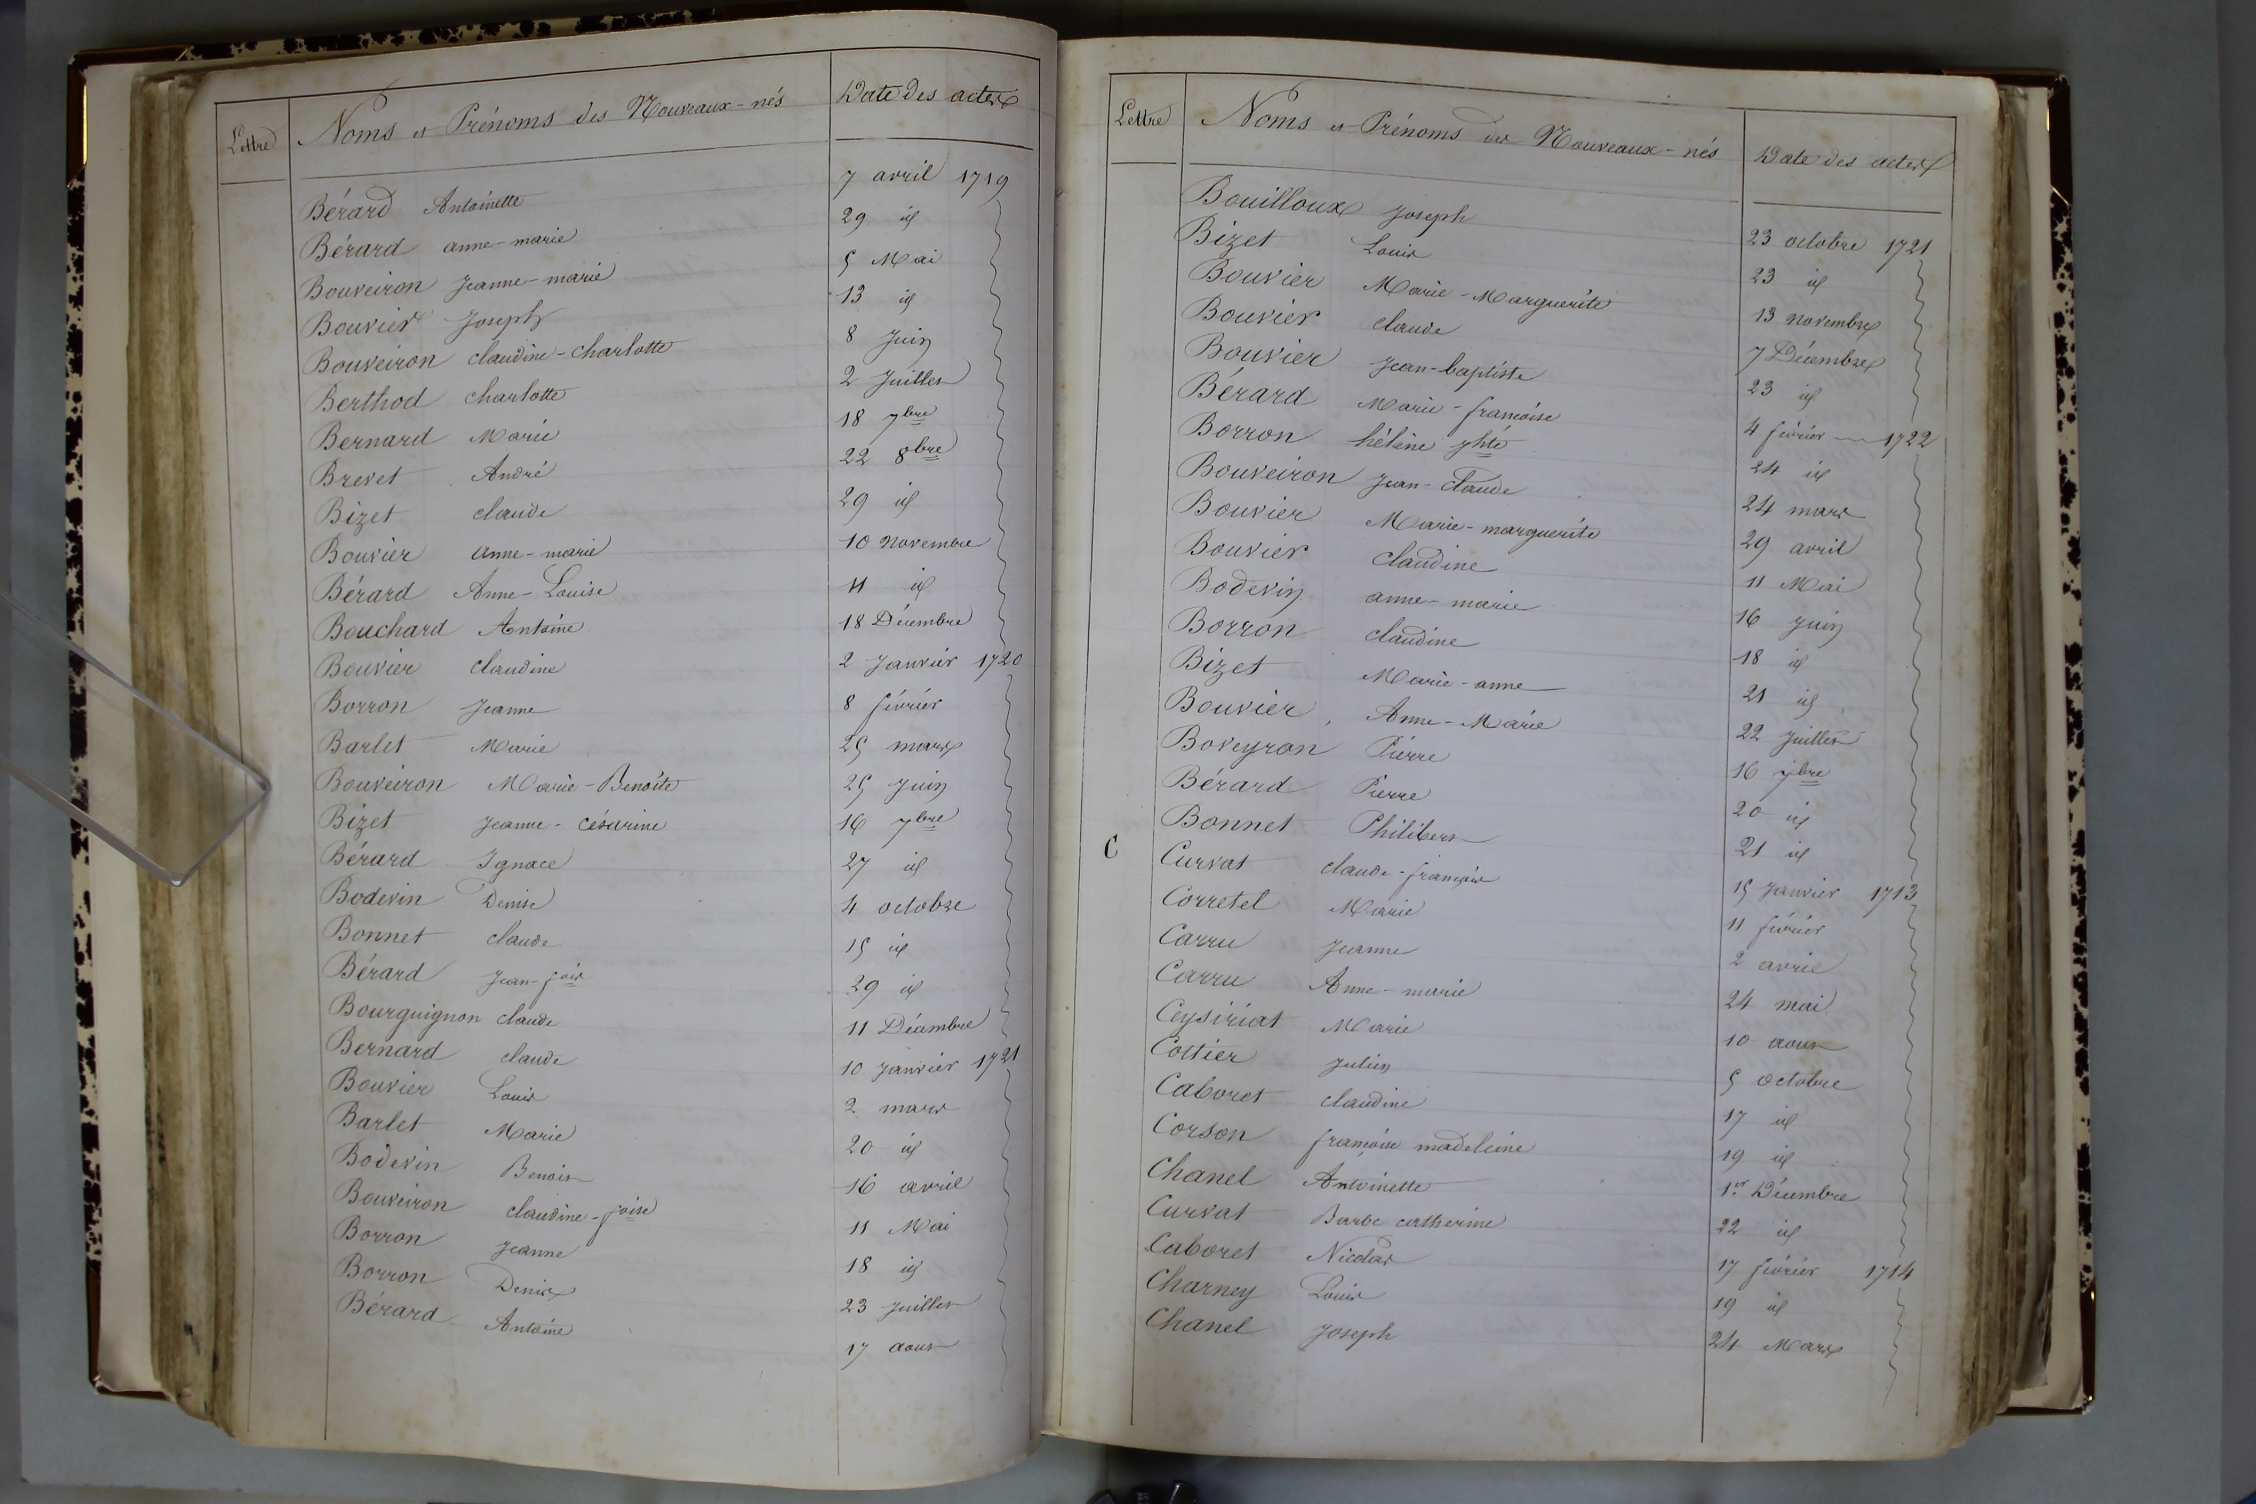 Lettre Noms et Prénoms des Nouveaux-nés Date des actes
Bérard Antoinette 7 avril 1719
Bérard anne-marie 29 id
Bouveiron Jeanne-marie 5 Mai
Bouvier Joseph 13 id
Bouveiron claudine-charlotte 8 Juin
Berthod charlotte 2 Juillet
Bernard Marie 18 7bre
Brevet André 22 8bre
Bizet claude 29 id
Bouvier anne-marie 10 novembre
Bérard Anne-Louise 11 id
Bouchard Antoine 18 Décembre
Bouvier claudine 2 Janvier 1720
Borron Jeanne 8 février
Barlet Marie 25 mars
Bouveiron Marie-Benoite 25 Juin
Bizet Jeanne-césarine 16 7bre
Bérard Ignace 27 id
Bodevin Denise 4 octobre
Bonnet claude 15 id
Bérard Jean-fois 29 id
Bourguignon claude 11 Décembre
Bernard claude 10 Janvier 1721
Bouvier Louis 2 mars
Barlet Marie 20 id
Bodevin Benoit 16 avril
Bouveiron claudine-foise 11 Mai
Borron Jeanne 18 id
Borron Denis 23 Juillet
Bérard Antoine 17 aout
Lettre Noms et Prénoms des Nouveaux-nés Date des actes
Bouilloux Joseph 23 octobre 1721
Bizet Louis 23 id
Bouvier Marie-Marguerite 13 novembre
Bouvier claude 7 Décembre
Bouvier Jean-baptiste 23 id
Bérard Marie-françoise 4 février 1722
Borron hélène phte 24 id
Bouveiron Jean-Claude 24 mars
Bouvier Marie-marguerite 29 avril
Bouvier claudine 11 Mai
Bodevin anne-marie 16 Juin
Borron claudine 18 id
Bizet Marie-anne 21 id
Bouvier Anne-Marie 22 Juillet
Boveyron Pierre 16 7bre
Bérard Pierre 20 id
Bonnet Philibert 21 id
C Curvat claude-françois 15 Janvier 1713
Corretel Marie 11 février
Carru Jeanne 2 avril
Carru Anne-marie 24 mai
Ceysiriat Marie 10 aout
Cottier Julien 5 octobre
Caboret claudine 17 id
Corson françoise madeleine 19 id
Chanel Antoinette 1er Décembre
Curvat Barbe catherine 22 id
Caboret Nicolas 17 février 1714
Charney Louis 19 id
Chanel Joseph 24 Mars